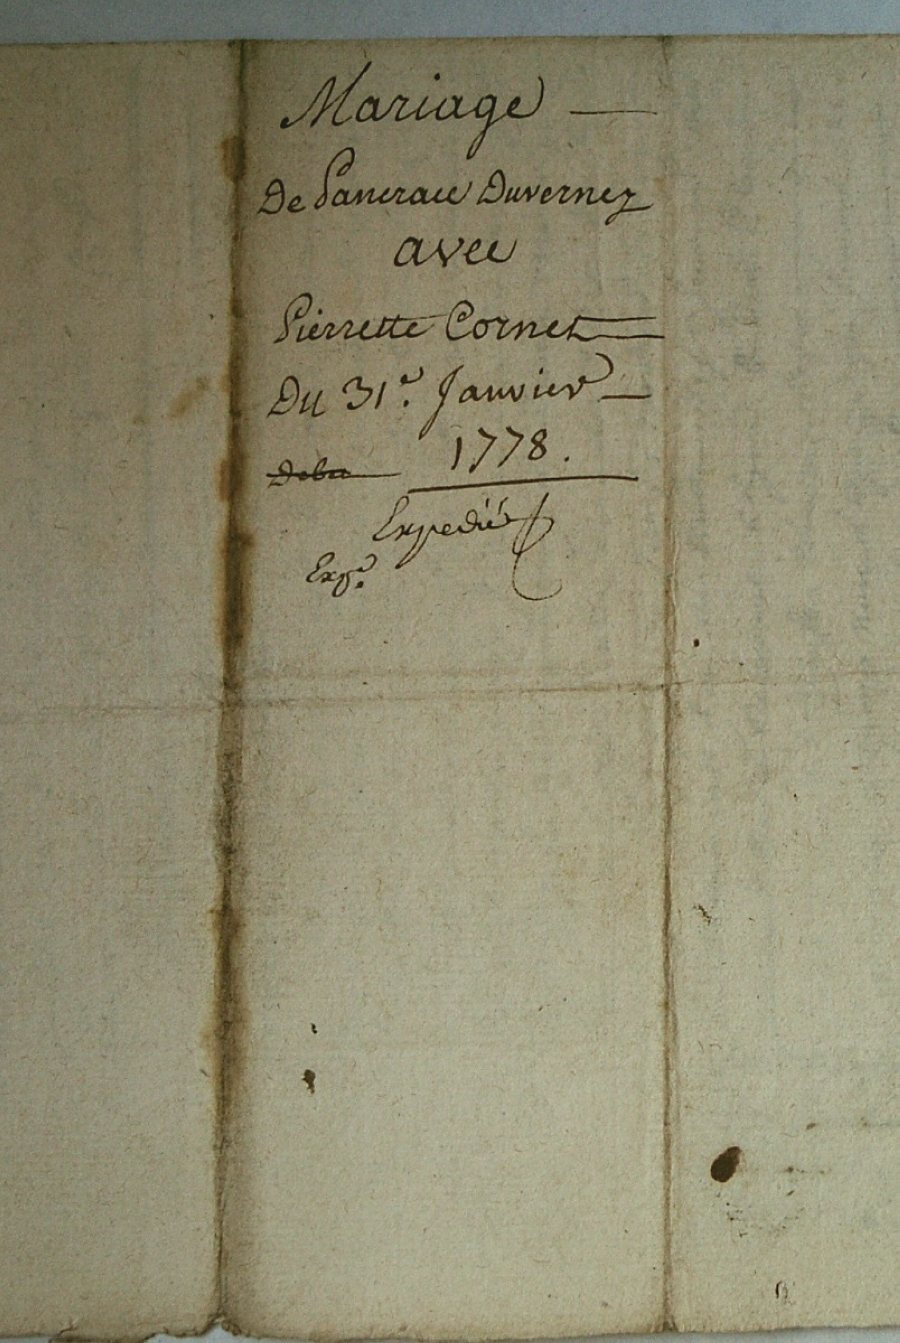 Mariage
De Pancrace Duvernez
avec
Pierrette Cornet
Du 31e. Janvier
1778.
Expedié
Exp.e